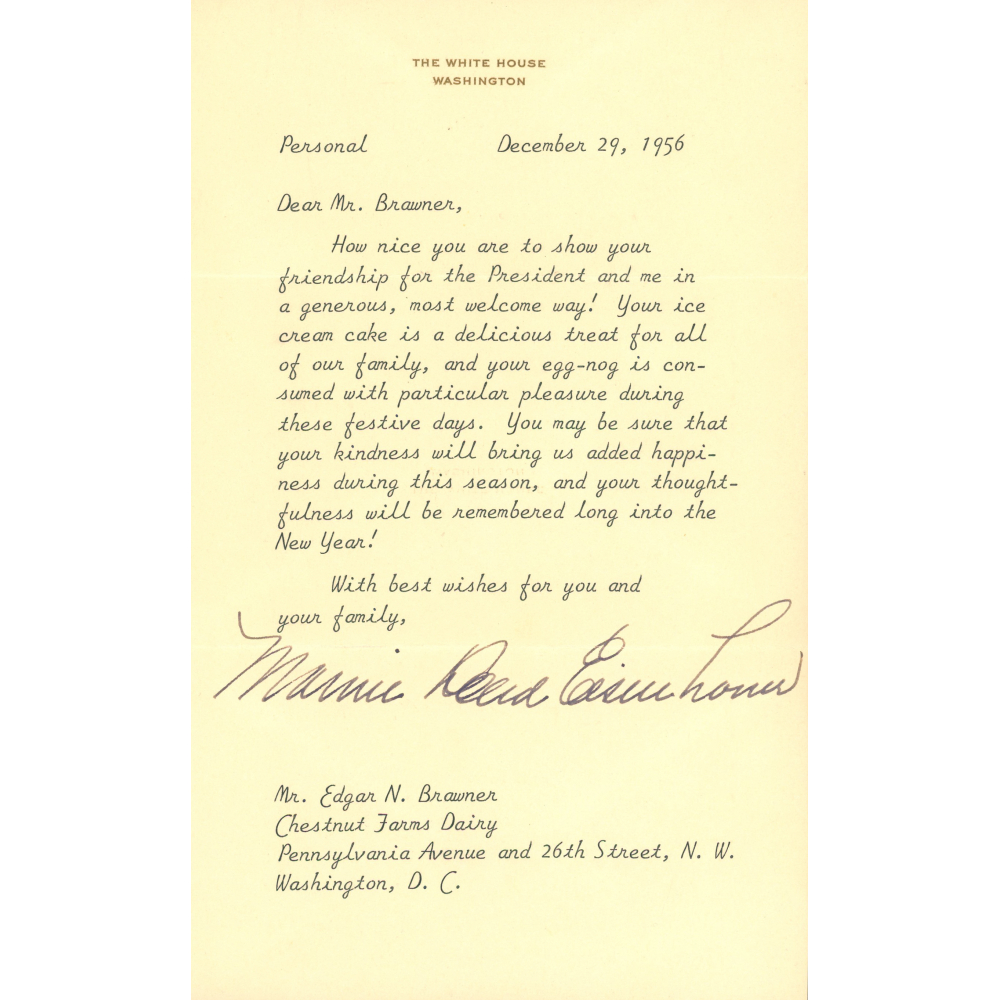 THE WHITE HOUSE
WASHINGTON
Personal December 29, 1956
Dear Mr. Brawner,
How nice you are to show your
friendship for the President and me in
a generous, most welcome way! Your ice
cream cake is a delicious treat for all
of our family, and your egg-nog is con-
sumed with particular pleasure during
these festive days. You may be sure that
your kindness will bring us added happi-
ness during this season, and your thought-
fulness will be remembered long into the
New Year!
With best wishes for you and
your family,
Mamie Doud Eisenhower
Mr. Edgar N. Brawner
Chestnut Farms Dairy
Pennsylvania Avenue and 26th Street, N. W.
Washington, D. C.